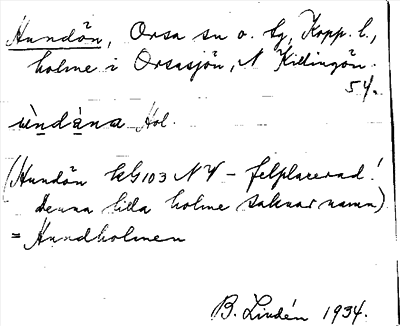 Hundön, Orsa sn o. tg, Kopp. l.,
holme i Orsasjön, N Killingön.
54.
ùndàna Hol.
(Hundön kG103 NV – felplacerad!
Denna lilla holme saknar namn)
= Hundholmen
B. Lindén 1934.